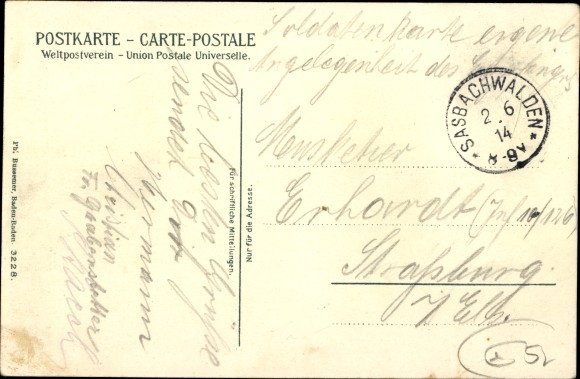 POSTKARTE – CARTE-POSTALE
Weltpostverein – Union Postale Universelle.
Soldatenkarte eigene
Angelegenheit des
SASBACHWALDEN
2.6
14
8-9V
Musketier
Erhardt
Straßburg
i/Els.
Die besten Grüße
sendet Dir
Hermann
Christian
Für schriftliche Mitteilungen.
Nur für die Adresse.
Ph. Bussemer, Baden-Baden. 3228.